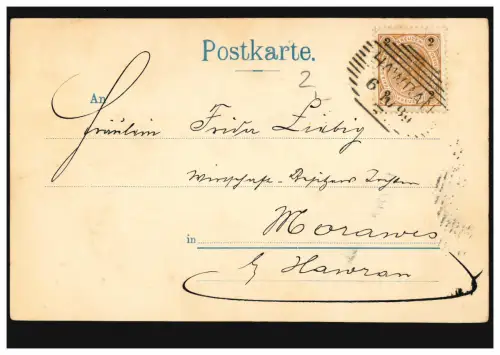 Postkarte.
2
2 2
An
Fräulein Frida Liebig
Wirtschafts-Besitzers Tochter
in Morawes
b/ Hawran